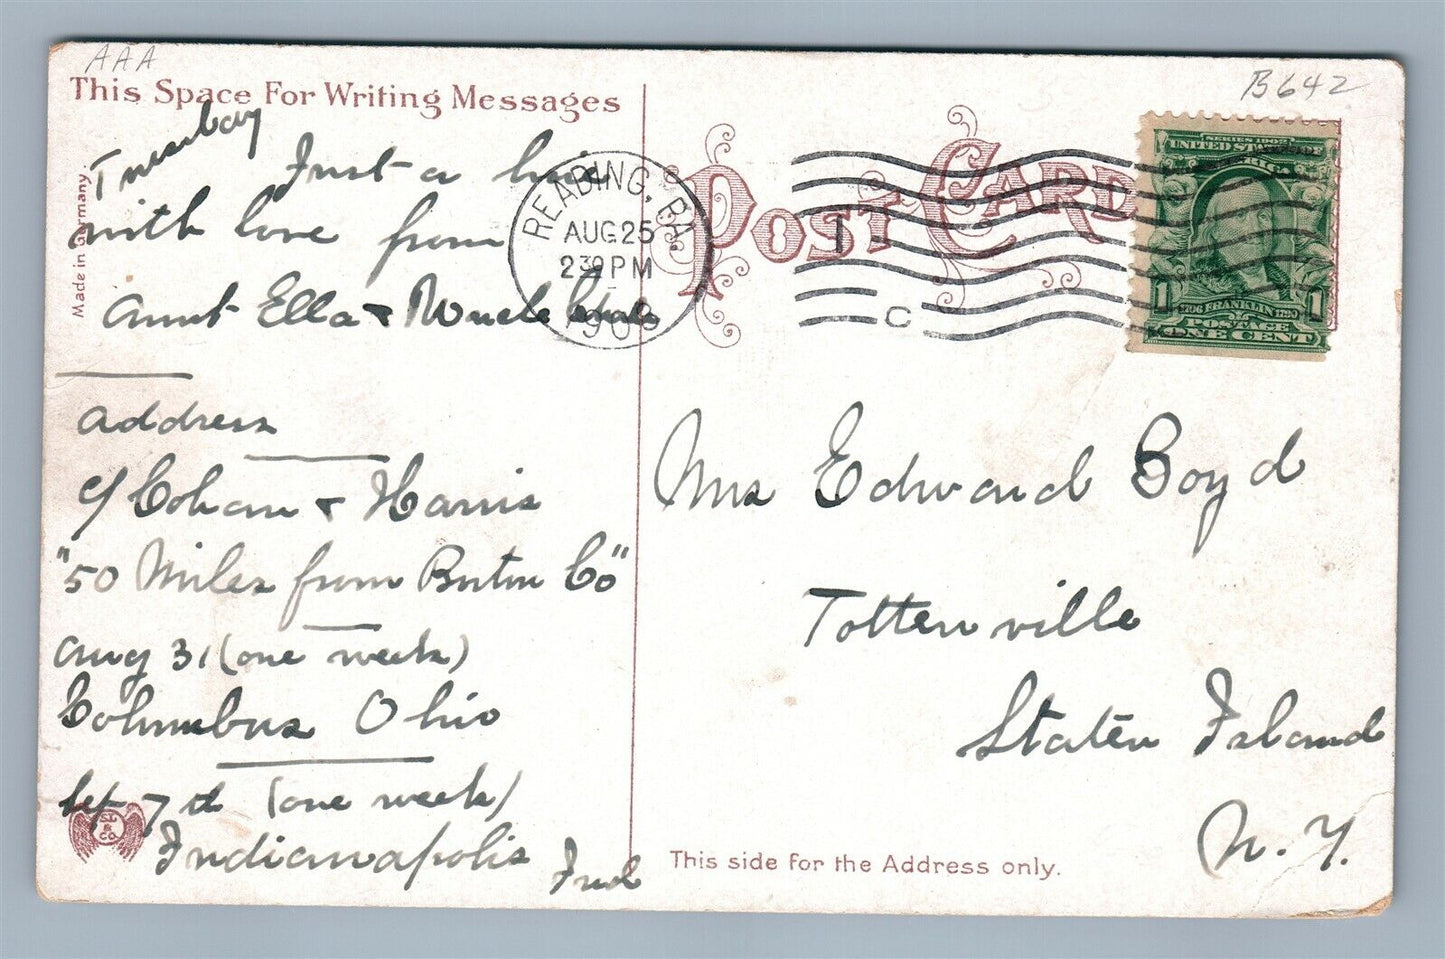 AAA
B642
This Space For Writing Messages
Made in Germany
Tuesday
Just a line
with love from
Aunt Ella & Uncle
address
c/ Cohan & Harris
"50 Miles from Boston Co"
Aug 31 (one week)
Columbus Ohio
Sep 7th (one week)
Indianapolis Ind
S.L. & CO.
READING, PA.
AUG 25
2 30 PM
1908
C
POST CARD
SERIES 1902
UNITED STATES OF AMERICA
1 1
1706 FRANKLIN 1790
POSTAGE
ONE CENT
Mrs Edward Boyd
Tottenville
Staten Island
N.Y.
This side for the Address only.